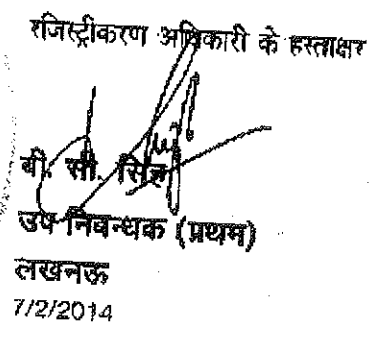 रजिस्ट्रीकरण अधिकारी के हस्ताक्षर
बी. सी. सिंह
उप निबन्धक (प्रथम)
लखनऊ
7/2/2014